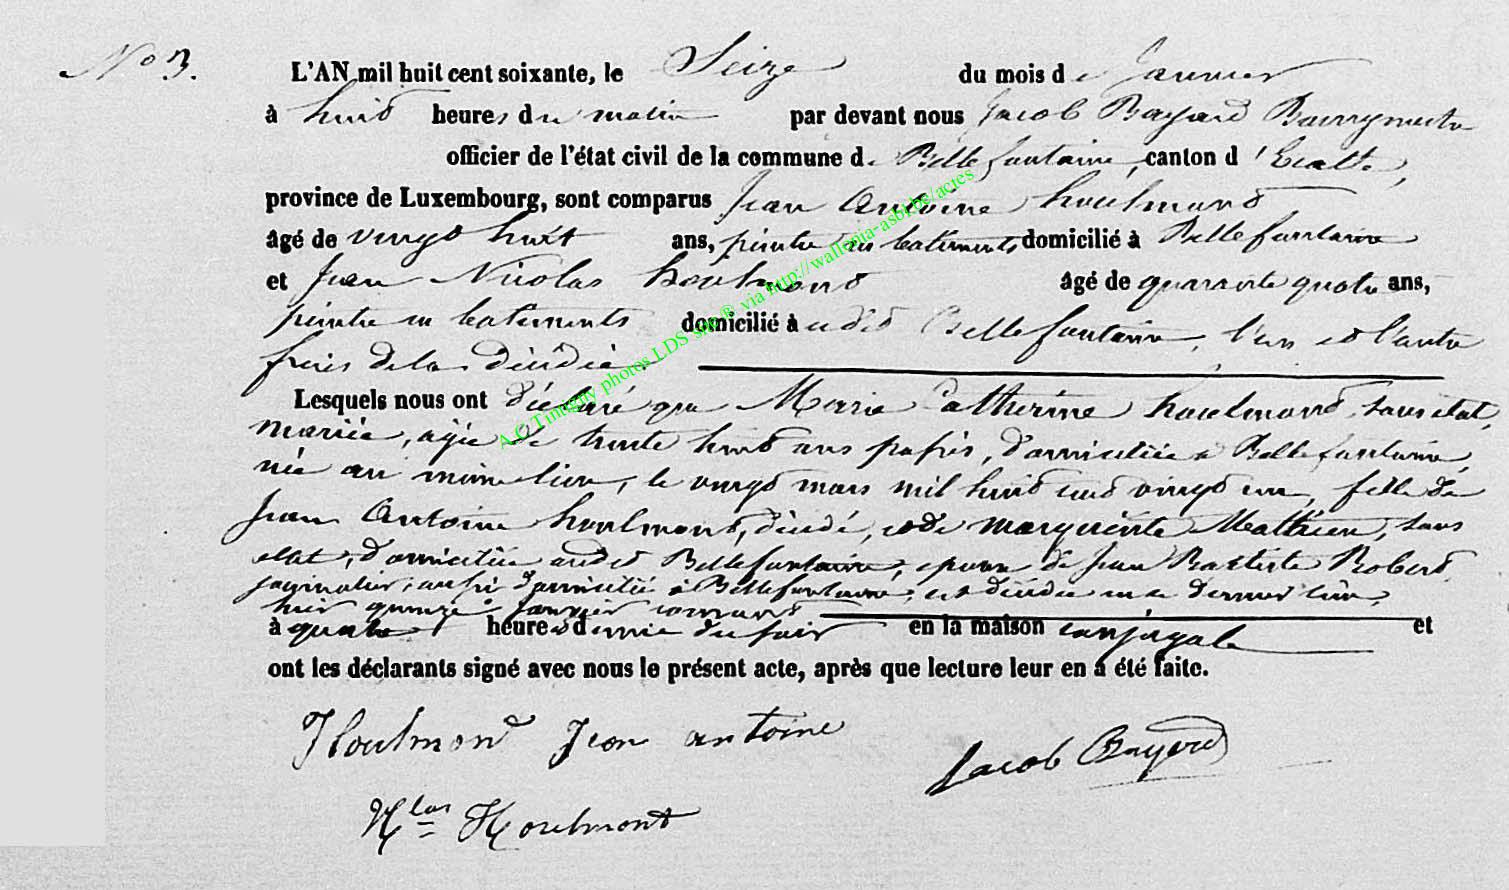 No 3.
L'AN mil huit cent soixante, le Seize du mois de Janvier
à huit heures du matin par devant nous Jacob Bayard Bourgmestre
officier de l'état civil de la commune de Bellefontaine, canton d'Etalle,
province de Luxembourg, sont comparus Jean Antoine houlmond
âgé de vingt huit ans, peintre en batiments domicilié à Bellefontaine
et Jean Nicolas houlmond âgé de quarante quatre ans,
peintre en batiments domicilié à udit Bellefontaine, l'un et l'autre
frères de la décédée.
Lesquels nous ont déclaré que Marie Catherine houlmond, sans état,
mariée, agée de trente huit ans passés, domiciliée à Bellefontaine,
née au même lieu, le vingt mars mil huit cent vingt un, fille de
Jean Antoine houlmont, décédé, et de Marguerite Mathieu, sans
état, domiciliée audit Bellefontaine, épouse de Jean Baptiste Robert
journalier, aussi domicilié à Bellefontaine, est décédée en ce dernier lieu,
hier quinze janvier courant
à quatre heures et demie du soir en la maison conjugale et
ont les déclarants signé avec nous le présent acte, après que lecture leur en a été faite.
Houlmond Jean antoine
Jacob Bayard
Nlas Houlmont
A.C Tintigny photos LDS site ® via http://wallonia-asbl.be/actes